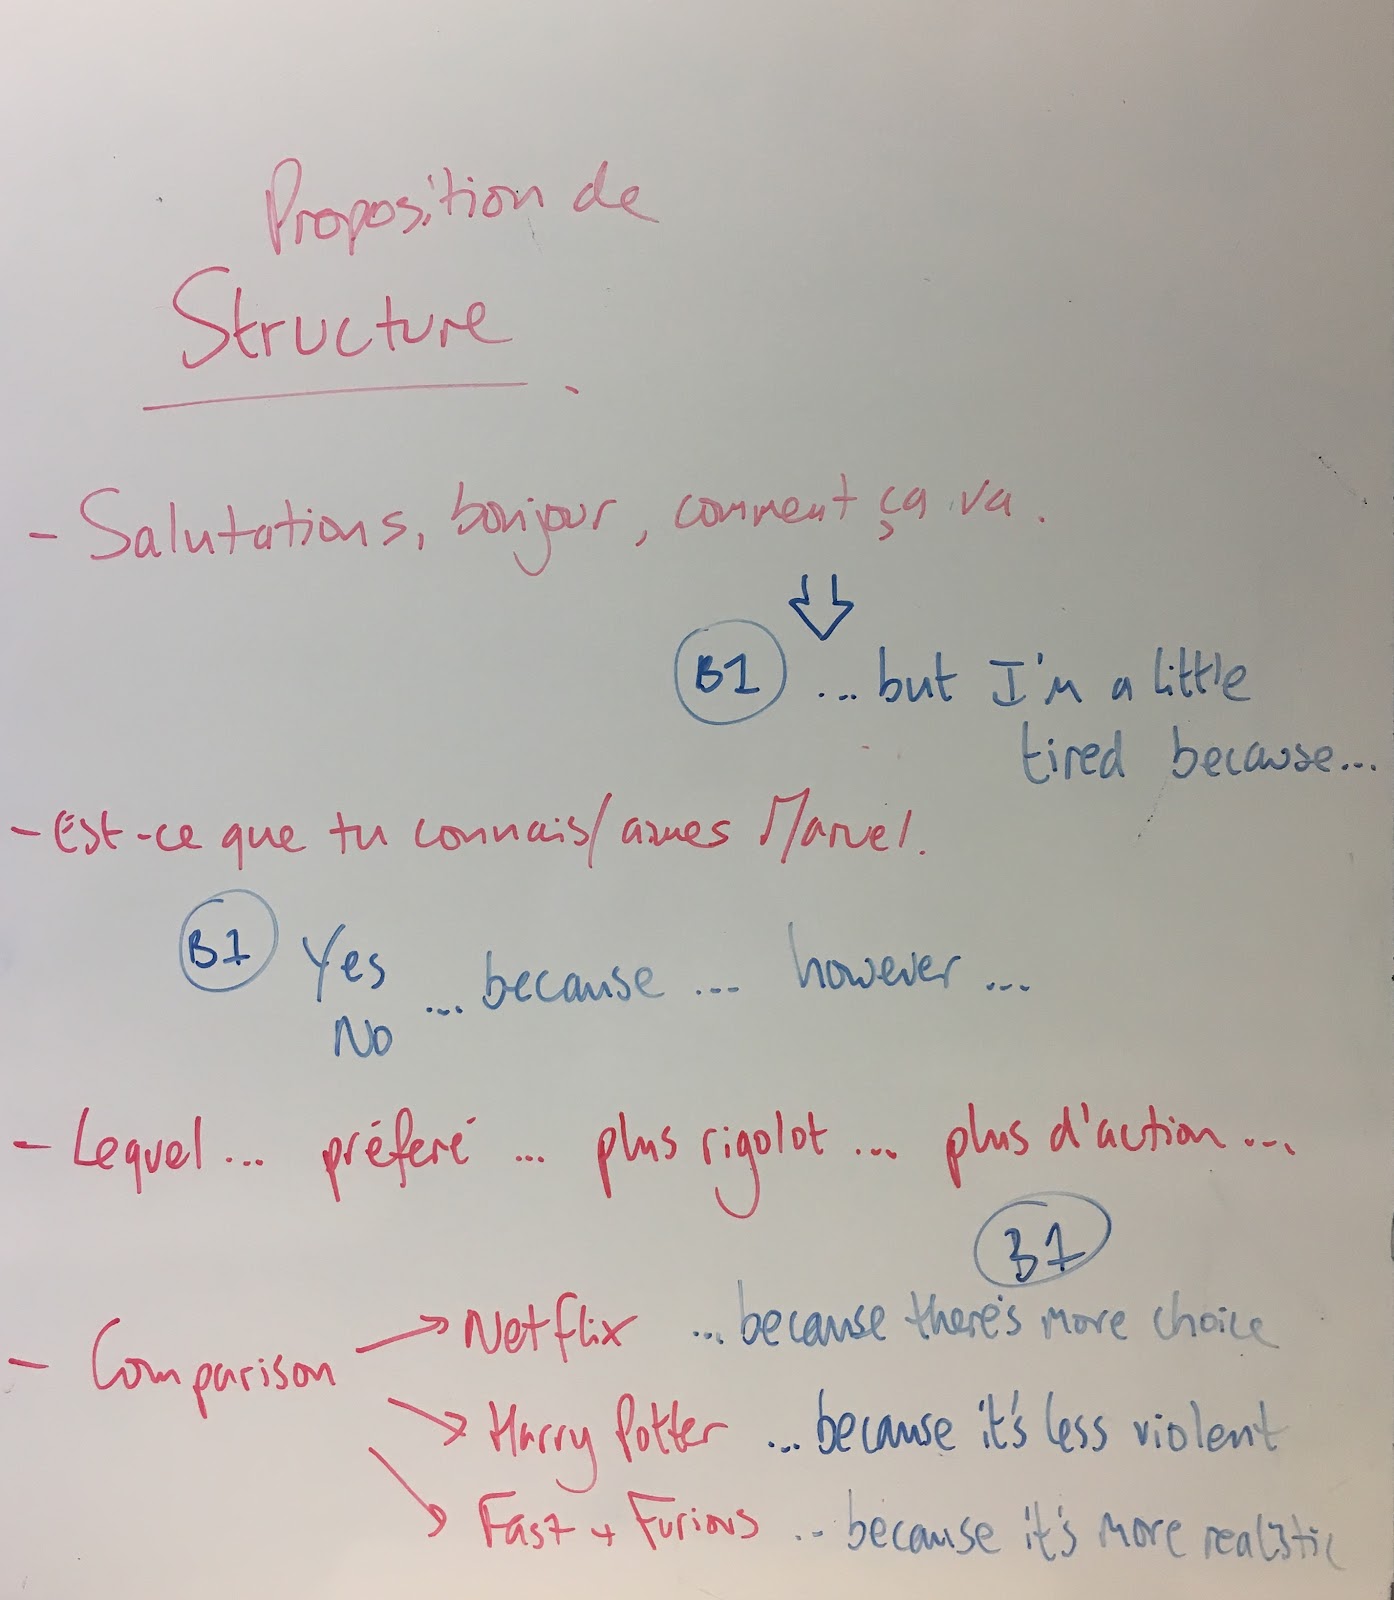 Proposition de
Structure.
- Salutations, bonjour, comment ça va.
B1 ... but I'm a little
tired because...
- Est-ce que tu connais/aimes Marvel.
B1 Yes ... because ... however ...
No
- Lequel ... préferé ... plus rigolot ... plus d'action ...
B1
- Comparison → Netflix ... because there's more choice
→ Harry Potter ... because it's less violent
→ Fast + Furious ... because it's more realistic